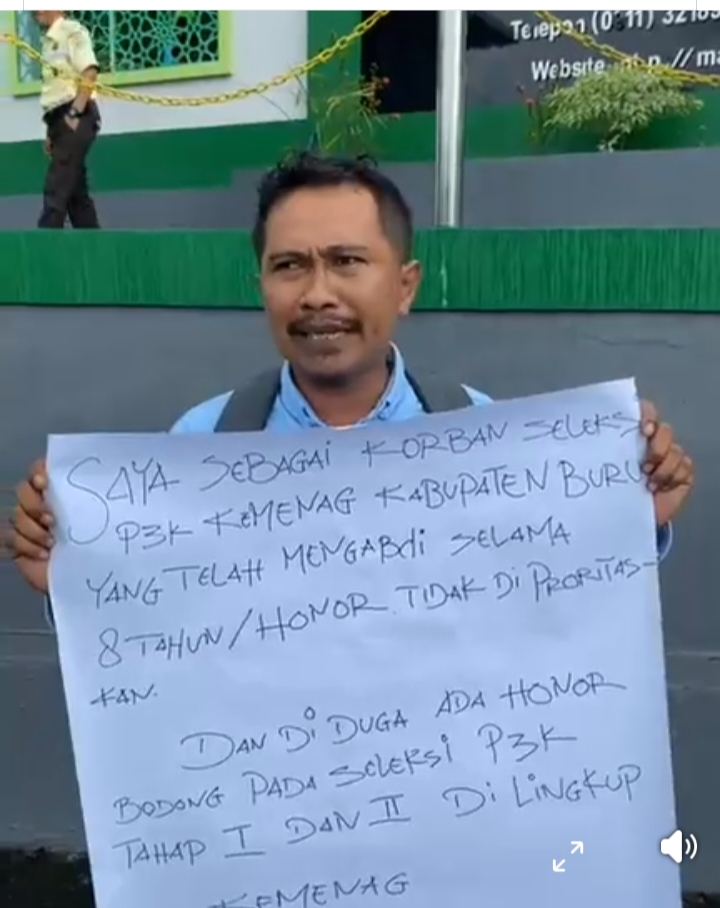 Telepon (0911) 3218
Website
SAYA SEBAGAI KORBAN SELEKSI
P3K KEMENAG KABUPATEN BURU
YANG TELAH MENGABdi SELAMA
8 TAHUN/HONOR. TIDAK Di PRORITAS-
KAN.
DAN Di DUGA ADA HONOR
BODONG PADA SELEKSi P3K
TAHAP I DAN II Di LiNGKUP
KEMENAG